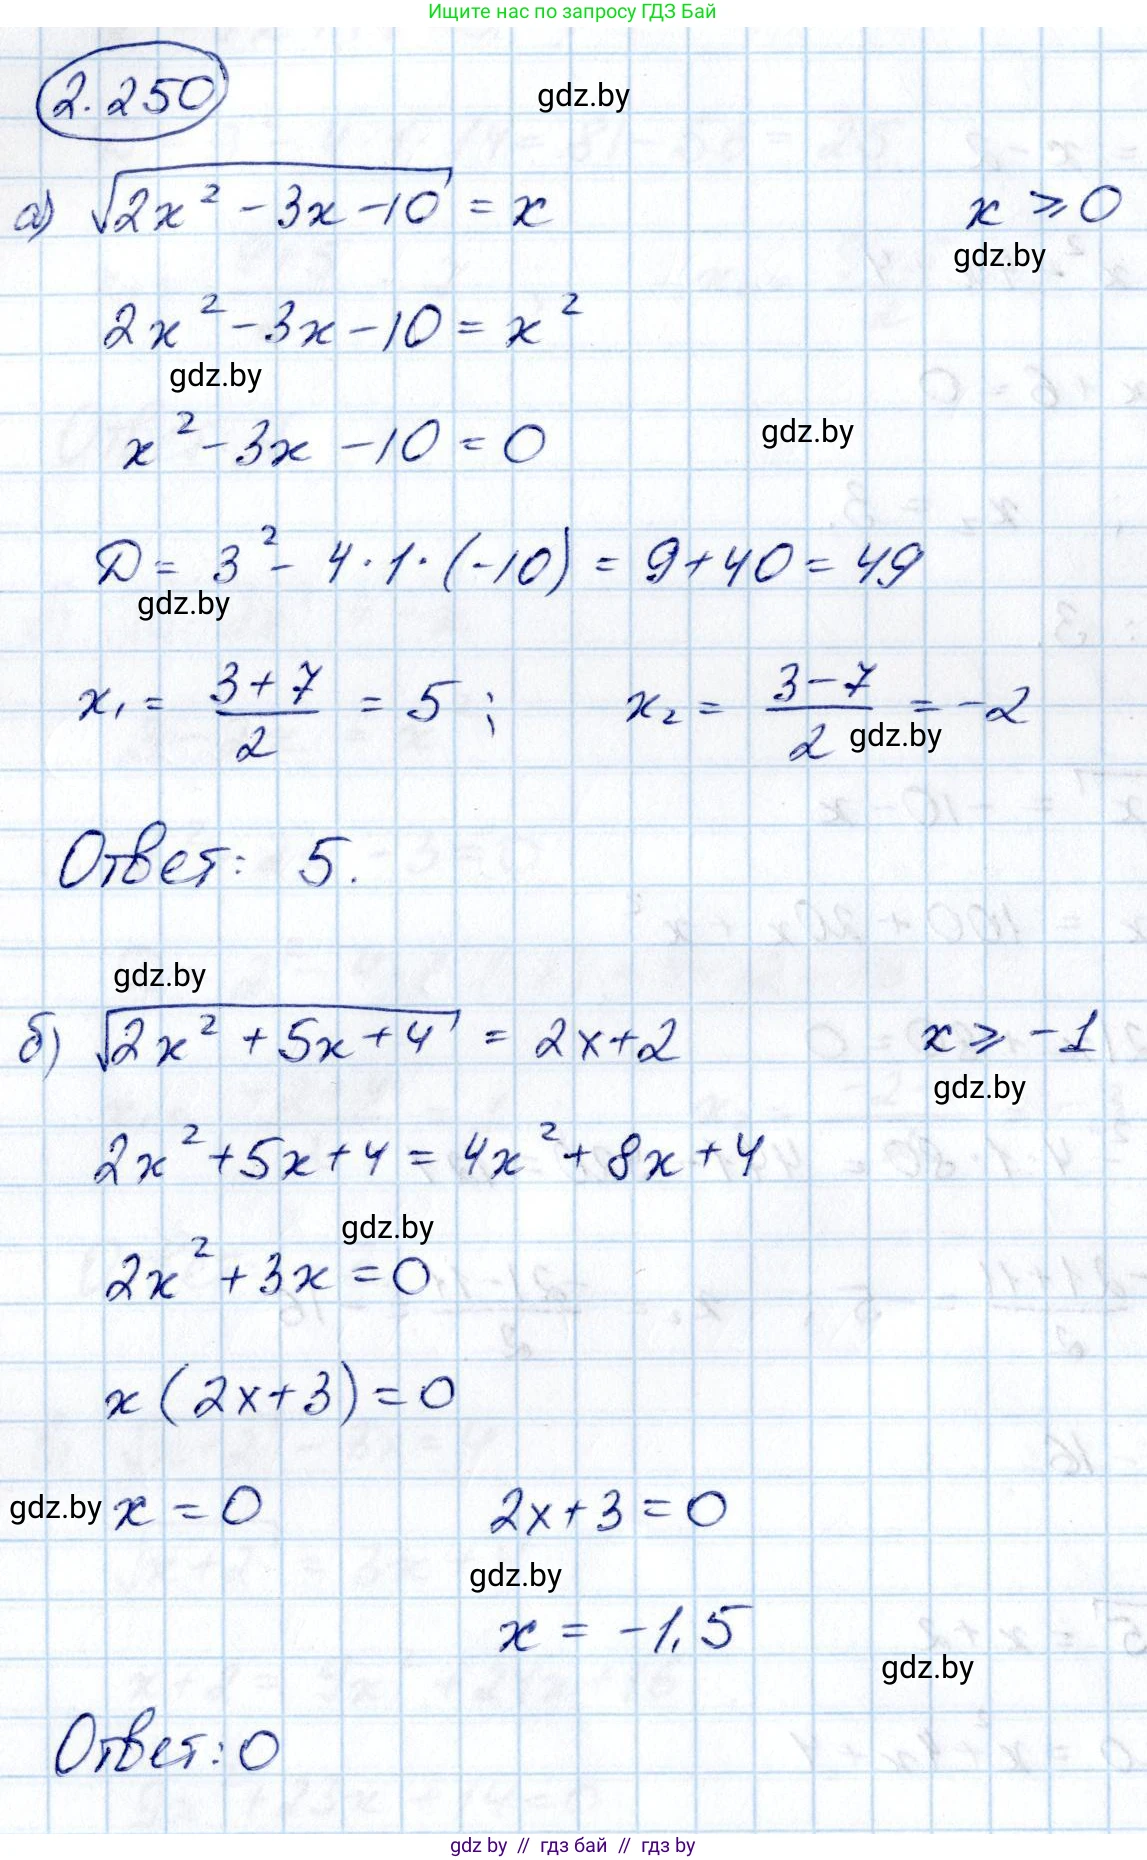 Ищите нас по запросу ГДЗ Бай
2.250
gdz.by
а) √(2x² - 3x - 10) = x    x ⩾ 0
gdz.by
2x² - 3x - 10 = x²
gdz.by
x² - 3x - 10 = 0
gdz.by
D = 3² - 4·1·(-10) = 9 + 40 = 49
gdz.by
x₁ = (3+7)/2 = 5;    x₂ = (3-7)/2 = -2
gdz.by
Ответ: 5.
gdz.by
б) √(2x² + 5x + 4) = 2x + 2    x ⩾ -1
gdz.by
2x² + 5x + 4 = 4x² + 8x + 4
gdz.by
2x² + 3x = 0
x(2x+3) = 0
gdz.by x = 0    2x + 3 = 0
gdz.by
x = -1,5
gdz.by
Ответ: 0
gdz by // гдз бай // гдз by